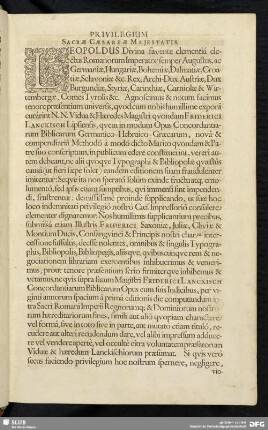 PRIVILEGIUM
SACRÆ CÆSAREÆ MAJESTATIS.
LEOPOLDUS Divina favente clementia ele-
ctus Romanorum Imperator semper Augustus, ac
Germaniæ, Hungariæ, Bohemiæ, Dalmatiæ, Croa-
tiæ, Sclavoniæ &c. Rex, Archi-Dux Austriæ, Dux
Burgundiæ, Styriæ, Carinthiæ, Carniolæ & Wir-
tembergæ, Comes Tyrolis &c. Agnoscimus & notum facimus
tenore præsentium universis, quod cum nobis humillime exponi
curârint N. N. Vidua & Hæredes Magistri quondam FRIDERICI
LANCKISCH Lipsiensis, quem in modum Opus Concordantia-
rum Biblicarum Germanico-Hebraico-Græcarum, novâ &
compendiosâ Methodo à modò dicto Marito quondam & Pa-
tre suo conscriptum, in publicum edere constituerint, vereri au-
tem debeant, ne alii quoque Typographi & Bibliopolæ quæstûs
causâ (ut fieri ipse solet) eandem editionem suam fraudulenter
imitentur: Seque ita non sperato solum exinde fructu
lumento, sed ipsis etiam sumptibus, qui immensi sint impenden-
di, frustrentur: demississimè proinde supplicando, ut sive hoc
loco indemnitati privilegio nostro Cæs. Impressorio consulere
clementer dignaremur: Nos humillimis supplicantium precibus,
submissâ etiam Illustris FRIDERICI Saxoniæ, Juliæ, Cliviæ &
Montium Ducis, Consanguinei & Principis nostri chari inter-
cessione suffultis, deesse nolentes, omnibus & singulis Typogra-
phis, Bibliopolis, Bibliopegis, aliisque, quibuscunque rem & ne-
gociationem librariam exercentibus inhibuerimus & vetueri-
mus, prout tenore præsentium serio firmiterque inhibemus &
vetamus, ne quis supra fatum Magistri FRIDERICI LANCKISCH
Concordantiarum Biblicarum Opus cum suis Indicibus, per vi-
ginti annorum spacium à primâ editionis die computandum in-
tra Sacri Romani Imperii Regnorumque & Dominiorum nostro-
rum hæreditariorum fines, simili aut alio quopiam charactere
vel formâ, sive in toto sive in parte, aut mutato etiam titulo, re-
cudere aut alteri recudendum dare, vel alibi impressum adduce-
re vel vendere apertè, vel occultè citra voluntatem præfatorum
Viduæ & hæredum Lanckischiorum præsumat. Si quis verò
secus faciendo privilegium hoc nostrum spernere, negligere,
vio-
SLUB
DFG